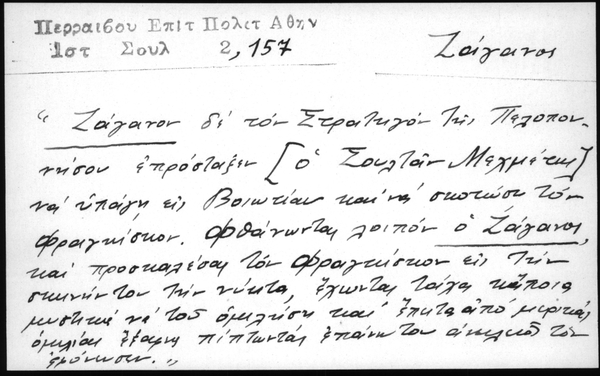 Περραιβου Επιτ Πολιτ Αθην
Ιστ Σουλ 2,157
Ζάγανος
"Ζάγανον δέ τόν Στρατηγόν τῆς Πελοπον-
νήσου ἐπρόσταξεν [ὁ Σουλτᾶν Μεχμέτης]
νά ὑπάγῃ εἰς Βοιωτίαν καί νά σκοτώσῃ τόν
Φραγκίσκον. Φθάνωντας λοιπόν ὁ Ζάγανος,
καί προσκαλέσας τόν Φραγκίσκον εἰς τήν
σκηνήν του τήν νύκτα, ἔχωντας τάχα κάποια
μυστικά νά τοῦ ὁμιλήσῃ καί ἔπειτα ἀπό μερικάς
ὁμιλίας ἔξαφνα πίπτωντας ἐπάνω του τόν
"